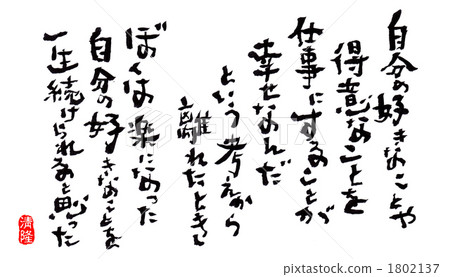 自分の好きなことや
得意なことを
仕事にすることが
幸せなんだ
という考えから
離れたとき
ぼくは楽になった
自分の好きなことを
一生続けられると思った
清隆
photo stock
PIXTA
pixta.jp - 1802137